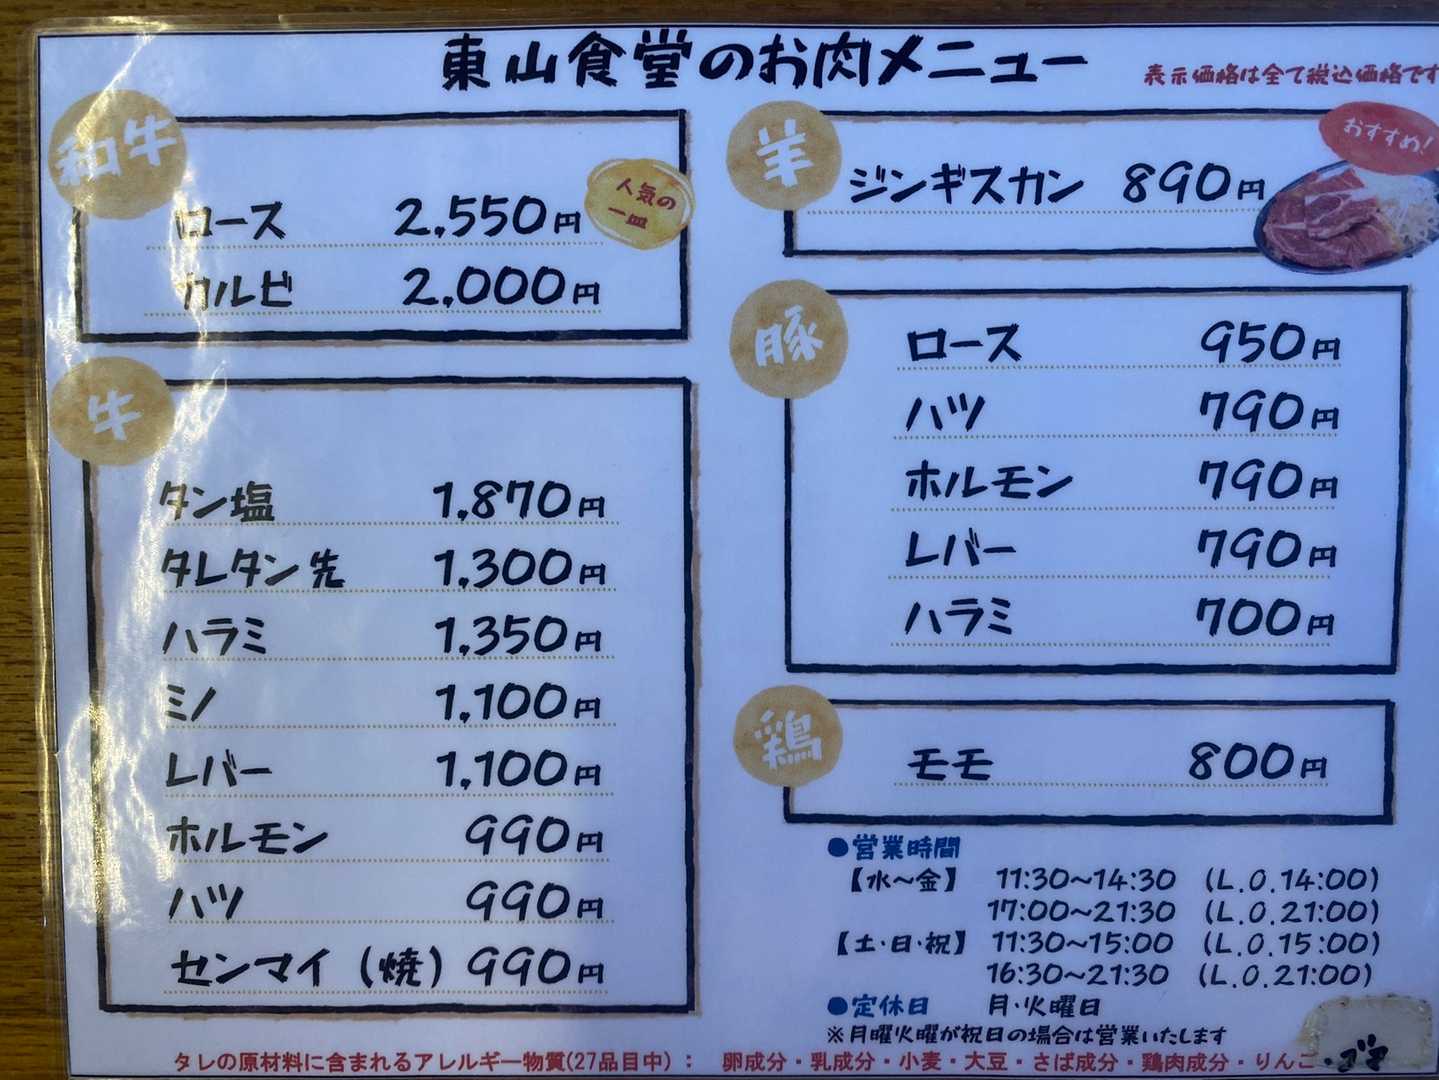 東山食堂のお肉メニュー
表示価格は全て税込価格です
和牛
ロース 2,550円
人気の
一皿
カルビ 2,000円
牛
タン塩 1,870円
タレタン先 1,300円
ハラミ 1,350円
ミノ 1,100円
レバー 1,100円
ホルモン 990円
ハツ 990円
センマイ（焼）990円
羊
ジンギスカン 890円
おすすめ!
豚
ロース 950円
ハツ 790円
ホルモン 790円
レバー 790円
ハラミ 700円
鶏
モモ 800円
●営業時間
【水～金】 11:30～14:30 （L.O.14:00）
17:00～21:30 （L.O.21:00）
【土・日・祝】 11:30～15:00 （L.O.15:00）
16:30～21:30 （L.O.21:00）
●定休日 月・火曜日
※月曜火曜が祝日の場合は営業いたします
タレの原材料に含まれるアレルギー物質(27品目中)： 卵成分・乳成分・小麦・大豆・さば成分・鶏肉成分・りんご・ゴマ